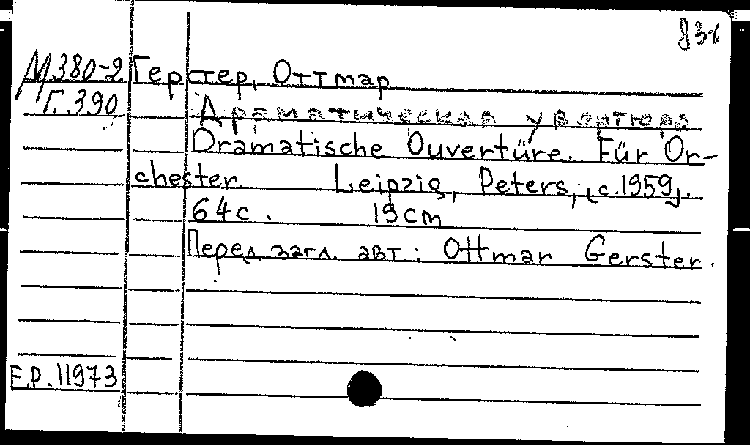 М380-2 Герстер, Оттмар
Г.390 Драматическая увертюра
Dramatische Ouvertüre. Für Or-
chester. Leipzig, Peters, [c.1959].
64с. 19cm
Перед загл. авт: Ottmar Gerster.
E.P. 11973